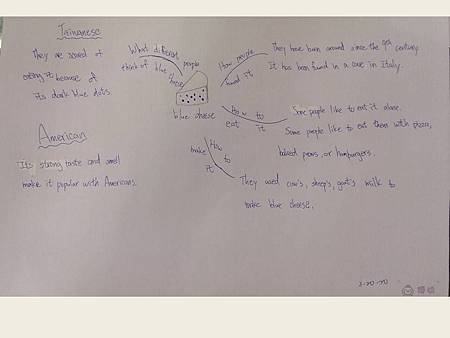 Taiwanese
They are scared of
eating it because of
its dark blue dots.
American
Its strong taste and smell
make it popular with Americans.
What different people
think of blue cheese
blue cheese
How people
found it
They have been around since the 9th century.
It has been found in a cave in Italy.
How to
eat it
Some people like to eat it alone.
Some people like to eat them with pizza,
baked pears, or hamburgers.
How to
make it
They used cow's, sheep's, goat's milk to
make blue cheese.
3-20-20